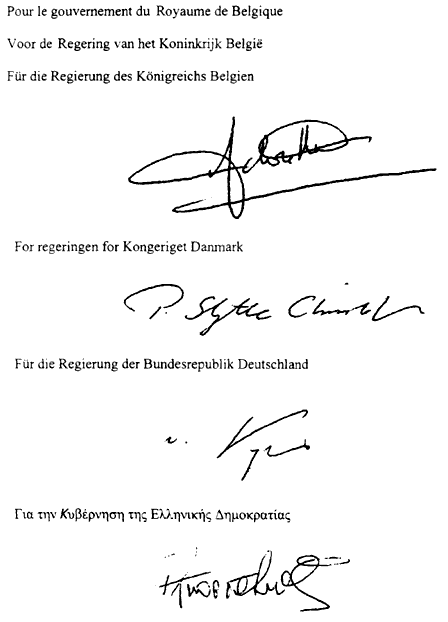 Pour le gouvernement du Royaume de Belgique
Voor de Regering van het Koninkrijk België
Für die Regierung des Königreichs Belgien
For regeringen for Kongeriget Danmark
Für die Regierung der Bundesrepublik Deutschland
Για την Κυβέρνηση της Ελληνικής Δημοκρατίας